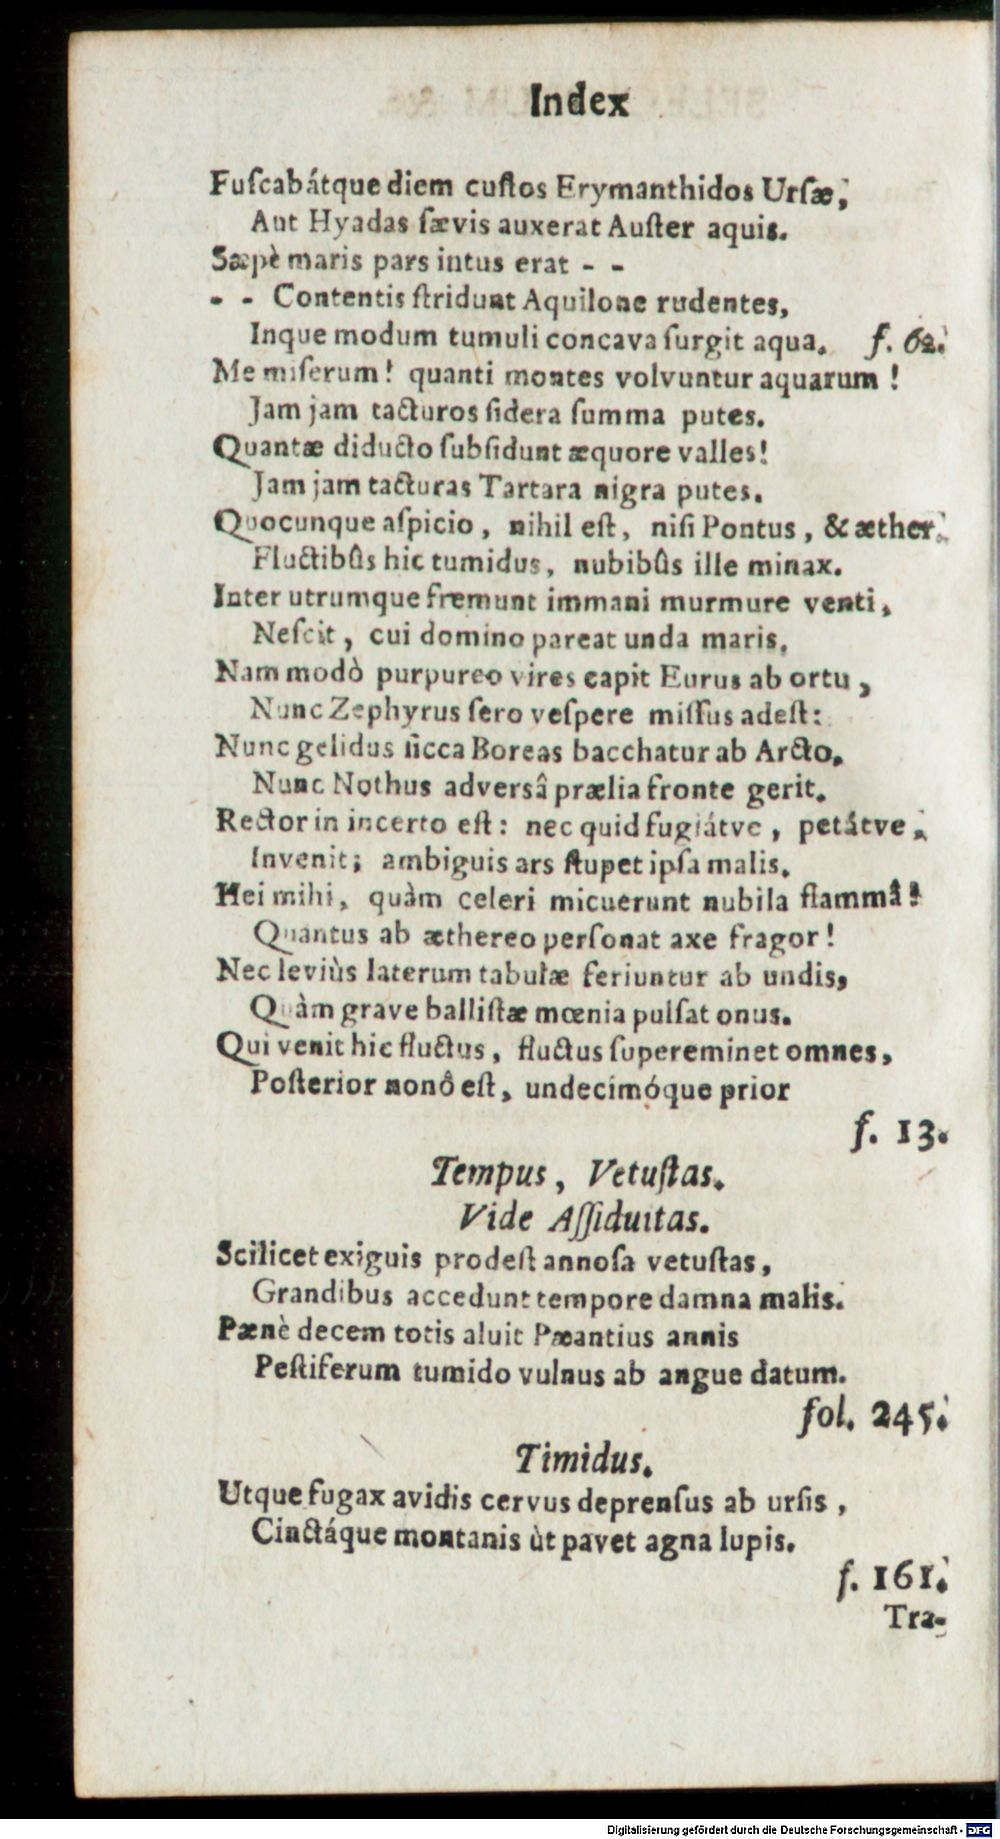 Index
Fuſcabátque diem cuſtos Erymanthidos Urſæ,
Aut Hyadas ſævis auxerat Auſter aquis.
Sæpè maris pars intus erat - -
- - Contentis ſtridunt Aquilone rudentes,
Inque modum tumuli concava ſurgit aqua. f. 62.
Me miſerum! quanti montes volvuntur aquarum!
Jam jam tacturos ſidera ſumma putes.
Quantæ diducto ſubſidunt æquore valles!
Jam jam tacturas Tartara nigra putes.
Quocunque aſpicio, nihil eſt, niſi Pontus, & æther.
Fluctibûs hic tumidus, nubibûs ille minax.
Inter utrumque fremunt immani murmure venti,
Neſcit, cui domino pareat unda maris.
Nam modò purpureo vires capit Eurus ab ortu,
Nunc Zephyrus ſero veſpere miſſus adeſt:
Nunc gelidus ſicca Boreas bacchatur ab Arcto.
Nunc Nothus adversâ prælia fronte gerit.
Rector in incerto eſt: nec quid fugiátve, petátve,
Invenit; ambiguis ars ſtupet ipſa malis.
Hei mihi, quàm celeri micuerunt nubila flammâ!
Quantus ab æthereo perſonat axe fragor!
Nec leviùs laterum tabulæ feriuntur ab undis,
Quàm grave balliſtæ mœnia pulſat onus.
Qui venit hic fluctus, fluctus ſupereminet omnes,
Poſterior nonô eſt, undecimóque prior
f. 13.
Tempus, Vetuſtas.
Vide Aſſiduitas.
Scilicet exiguis prodeſt annoſa vetuſtas,
Grandibus accedunt tempore damna malis.
Pænè decem totis aluit Pæantius annis
Peſtiferum tumido vulnus ab angue datum.
fol. 245.
Timidus.
Utque fugax avidis cervus deprenſus ab urſis,
Cinctáque montanis ùt pavet agna lupis.
f. 161.
Tra-
Digitalisierung gefördert durch die Deutsche Forschungsgemeinschaft - DFG